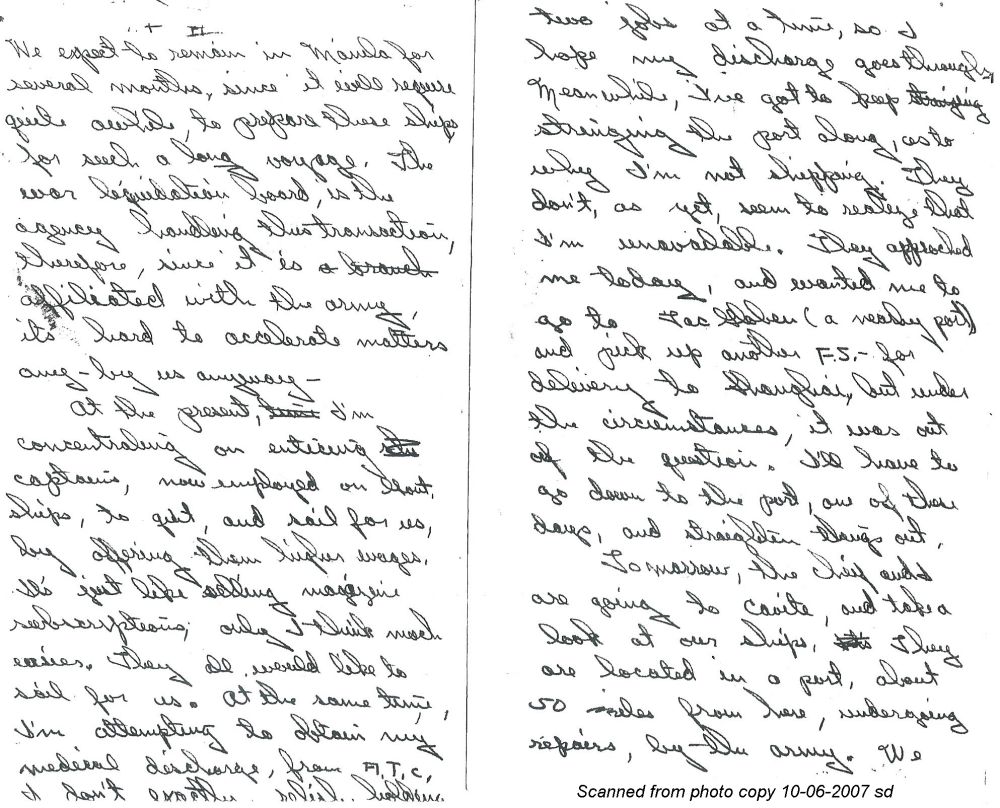 II
We expect to remain in Manila for
several months, since it will require
quite awhile, to prepare these ships
for such a long voyage. The
war liquidation board, is the
agency handling this transaction,
therefore, since it is a branch
affiliated with the army,
its hard to accelerate matters
any-by us anyway-
At the present, time I'm
concentrating on enticing the
captains, now employed on
ships, to quit, and sail for us,
by offering them higher wages.
It's just like selling magazine
subscriptions, only I think much
easier. They all would like to
sail for us. At the same time,
I'm attempting to obtain my
medical discharge, from A.T.C,
I don't holding
two jobs at a time, so I
hope my discharge goes through,
Meanwhile, I've got to keep stringing
stringing the port along, as to
why I'm not shipping. They
don't, as yet, seem to realize that
I'm unavailable. They approched
me today, and wanted me to
go to (a nearby port)
and pick up another F.S.- for
delivery to Shanghai, but under
the circumstances, it was out
of the question. I'll have to
go down to the port, one of these
days, and straighten things out,
Tomorrow, the chief and I
are going to cavite, and take a
look at our ships, They
are located in a port, about
50 miles from here, undergoing
repairs, by-the army. We
Scanned from photo copy 10-06-2007 sd